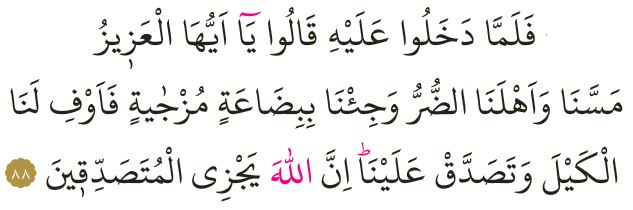 فَلَمَّا دَخَلُوا عَلَيْهِ قَالُوا يَٓا اَيُّهَا الْعَزٖيزُ
مَسَّنَا وَاَهْلَنَا الضُّرُّ وَجِئْنَا بِبِضَاعَةٍ مُزْجٰيةٍ فَاَوْفِ لَنَا
الْكَيْلَ وَتَصَدَّقْ عَلَيْنَاؕ اِنَّ اللّٰهَ يَجْزِى الْمُتَصَدِّقٖينَ ٨٨